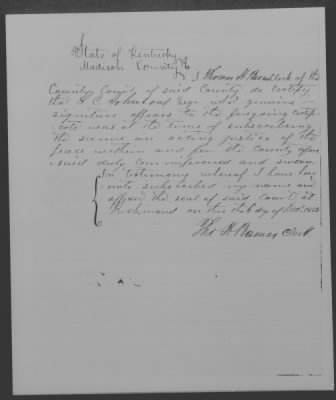 State of Kentucky
Madison County
I Thomas H Barnes Clerk of the
County Court of said County do certify
that H C Esqr whose genuine
signature appears to the foregoing certifi
cate was at the time of subscribing
the same an acting justice of the
peace within and for the County afore
said duly commissioned and sworn
In testimony whereof I have here
unto subscribed my name and
affixed the seal of said Court at
Richmond on this day of Decr
Tho H Barnes Clerk